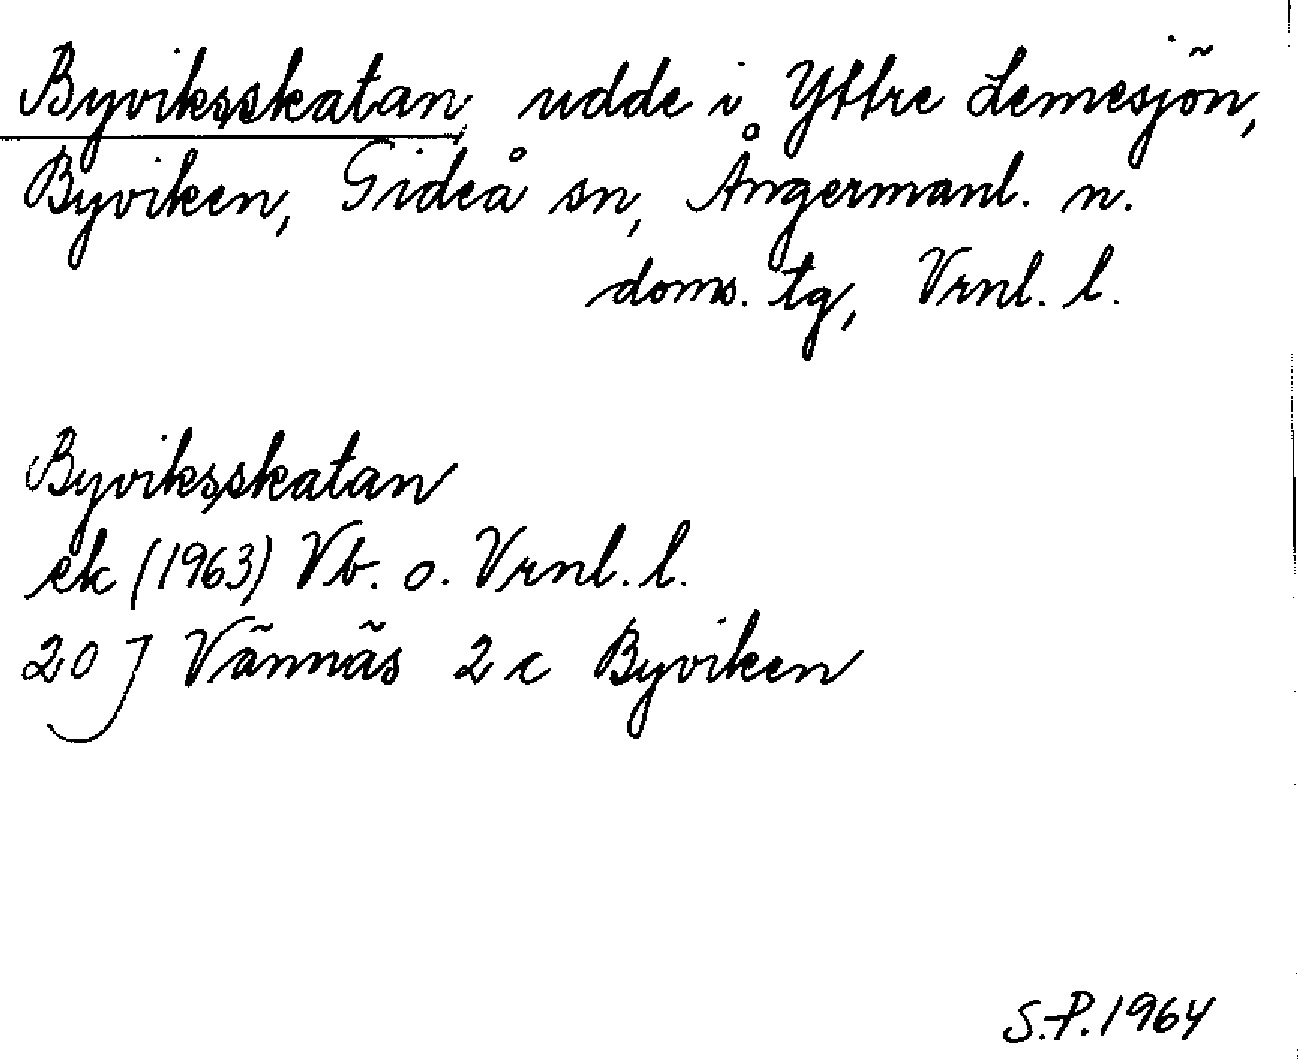 Byviksskatan, udde i Yttre Lemesjön,
Byviken, Gideå sn, Ångermanl. n.
doms. tg, Vrnl. l.
Byviksskatan
ek (1963) Vb. o. Vrnl. l.
20 J Vännäs 2 c Byviken
S.P. 1964